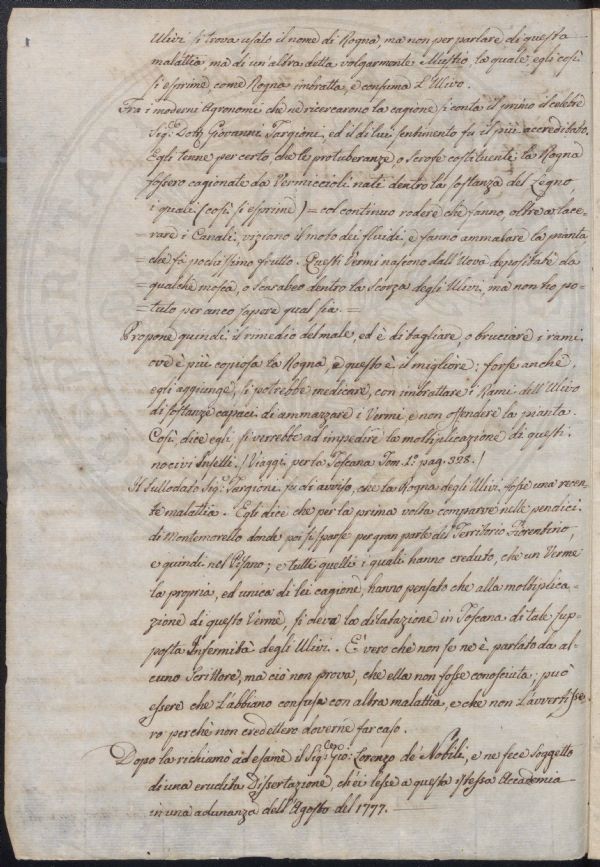 Ulivi si trova usato il nome di Rogna, ma non per parlare di questa
malattia ma di un altra detta volgarmente, la quale, egli così
si esprime, come Rogna imbratta, e consuma L'Ulivo.
Fra i moderni Agronomi che ne ricercarono la cagione si conta il primo il celebre
Sig.r Dott. Giovanni Targioni, ed il di lui sentimento fu il più accreditato.
Egli tenne per certo, che le protuberanze, o Scrofe costituenti la Rogna
fossero cagionate da Vermiccioli nati dentro la sostanza del Legno,
i quali (così si esprime) = col continuo rodere che fanno, oltre a lace-
= rare i Canali, viziano il moto dei fluidi, e fanno ammalare la pianta
= che fa pochissimo frutto. Questi Vermi nascono dall'Uova depositate da
= qualche mosca, o scarabeo dentro la Scorza degli Ulivi, ma non ho po-
= tuto per anco sapere qual sia. =
Propone quindi il rimedio del male, ed è di tagliare, o bruciare i rami
ove è più copiosa la Rogna, e questo è il migliore: forse anche,
egli aggiunge, si potrebbe medicare, con imbrattare i Rami dell'Ulivo
di sostanze capaci di ammazzare i Vermi, e non offendere la pianta.
Così, dice egli, si verrebbe ad impedire la moltiplicazione di questi
nocivi Insetti. / Viaggi per la Toscana Tom. 1.° pag. 328. /
Il Sullodato Sig.r Targioni fu di avviso, che la Rogna degli Ulivi fosse una recen-
te malattia. Egli dice che per la prima volta comparve nelle pendici
di Montemorello donde poi si sparse per gran parte del Territorio Fiorentino,
e quindi nel Pisano; e tutti quelli i quali hanno creduto, che un Verme
la propria, ed unica di lei cagione, hanno pensato che alla moltiplica-
zione di questo Verme, si deva la dilatazione in Toscana di tale sup-
posta Infermità degli Ulivi. È vero che non se ne è parlato da al-
cuno Scrittore, ma ciò non prova, che ella non fosse conosciuta; può
essere che L'abbiano confusa con altra malattia, e che non L'avvertisse-
ro perchè non credettero doverne far caso.
Dopo la richiamò ad esame il Sig.r Lorenzo de' Nobili, e ne fece soggetto
di una erudita Dissertazione, ch'ei lesse a questa istessa Accademia
in una adunanza dell'Agosto del 1777.